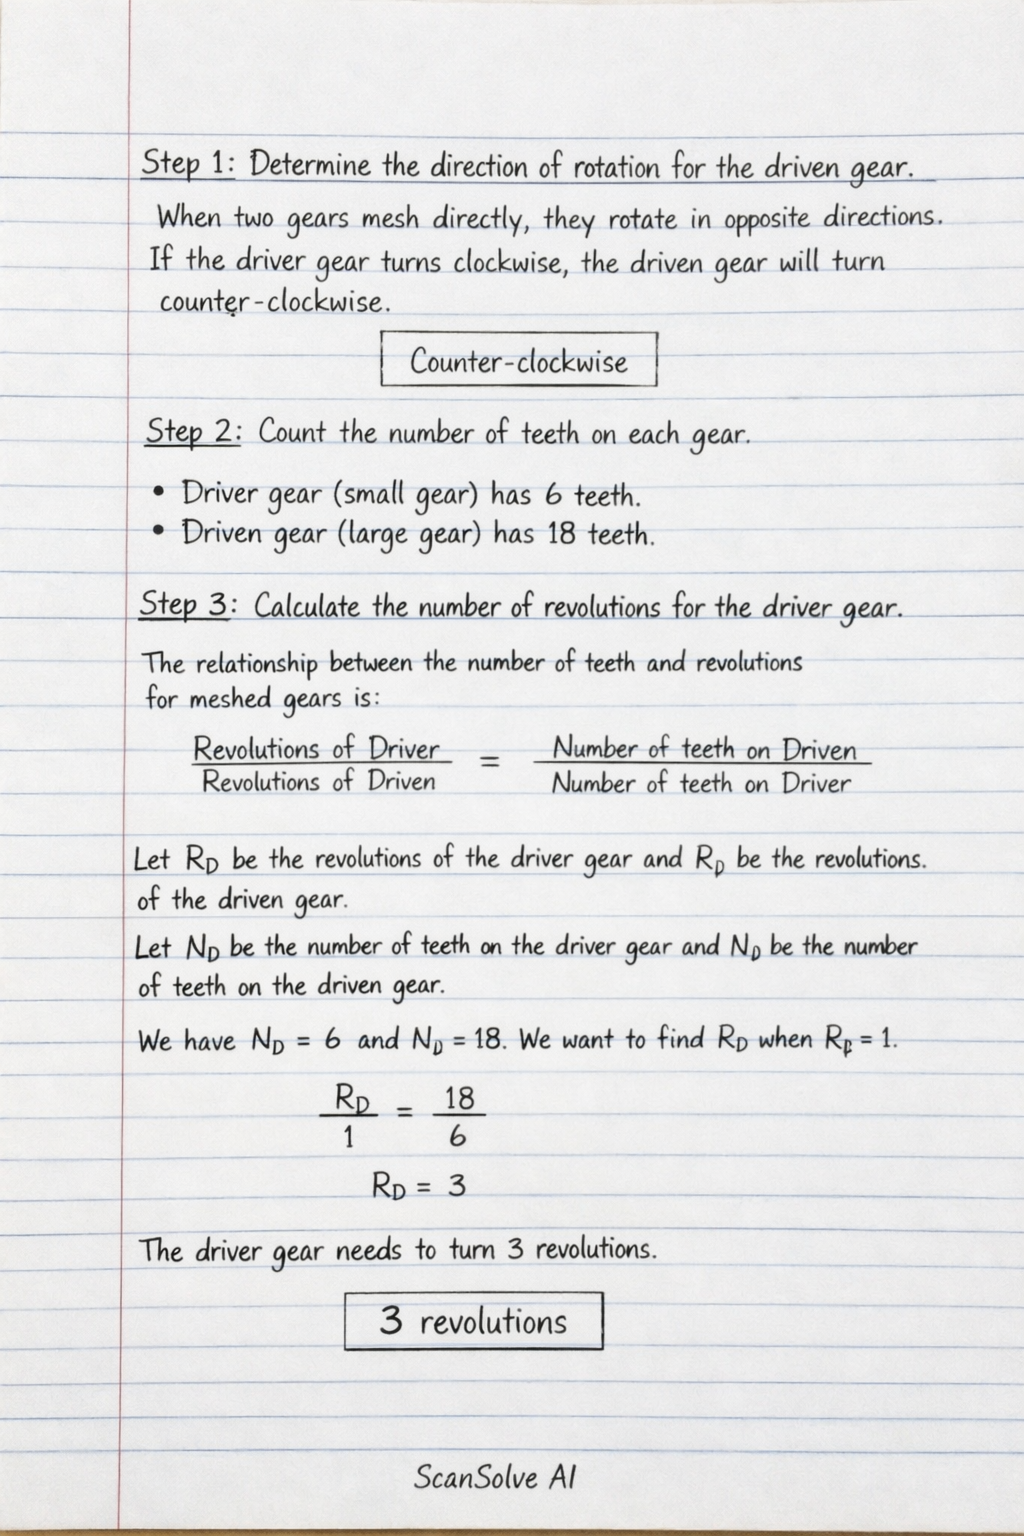 Step 1: Determine the direction of rotation for the driven gear.
When two gears mesh directly, they rotate in opposite directions.
If the driver gear turns clockwise, the driven gear will turn
counter-clockwise.
Counter-clockwise
Step 2: Count the number of teeth on each gear.
• Driver gear (small gear) has 6 teeth.
• Driven gear (large gear) has 18 teeth.
Step 3: Calculate the number of revolutions for the driver gear.
The relationship between the number of teeth and revolutions
for meshed gears is:
Revolutions of Driver / Revolutions of Driven = Number of teeth on Driven / Number of teeth on Driver
Let R_D be the revolutions of the driver gear and R_D be the revolutions.
of the driven gear.
Let N_D be the number of teeth on the driver gear and N_D be the number
of teeth on the driven gear.
We have N_D = 6 and N_D = 18. We want to find R_D when R = 1.
R_D / 1 = 18 / 6
R_D = 3
The driver gear needs to turn 3 revolutions.
3 revolutions
ScanSolve AI